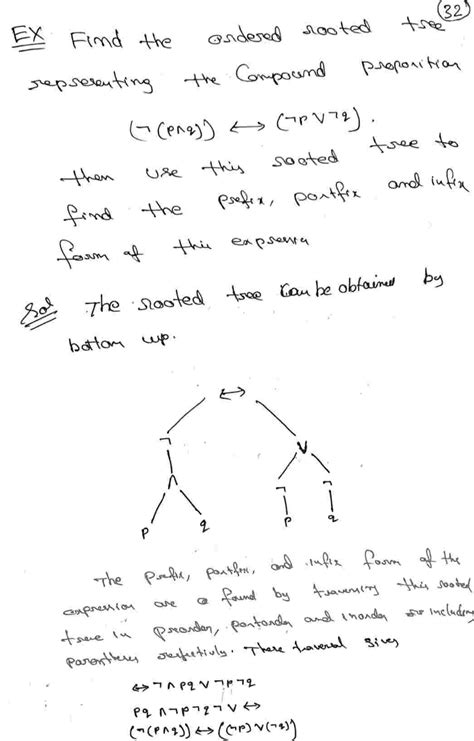 (32)
EX Find the ordered rooted tree
representing the Compound proposition
(¬(p∧q)) ↔ (¬p∨¬q).
then use this rooted tree to
find the prefix, postfix and infix
form of this expression
Sol The rooted tree Can be obtained by
bottom up.
↔
¬ ∨
∧ ¬ ¬
p q p q
The prefix, postfix, and infix form of the
expression are found by traversing this rooted
tree in preorder, postorder and inorder including
parentheses respectively. These traversal gives
↔¬∧pq∨¬p¬q
pq∧¬p¬q¬∨↔
(¬(p∧q))↔((¬p)∨(¬q))